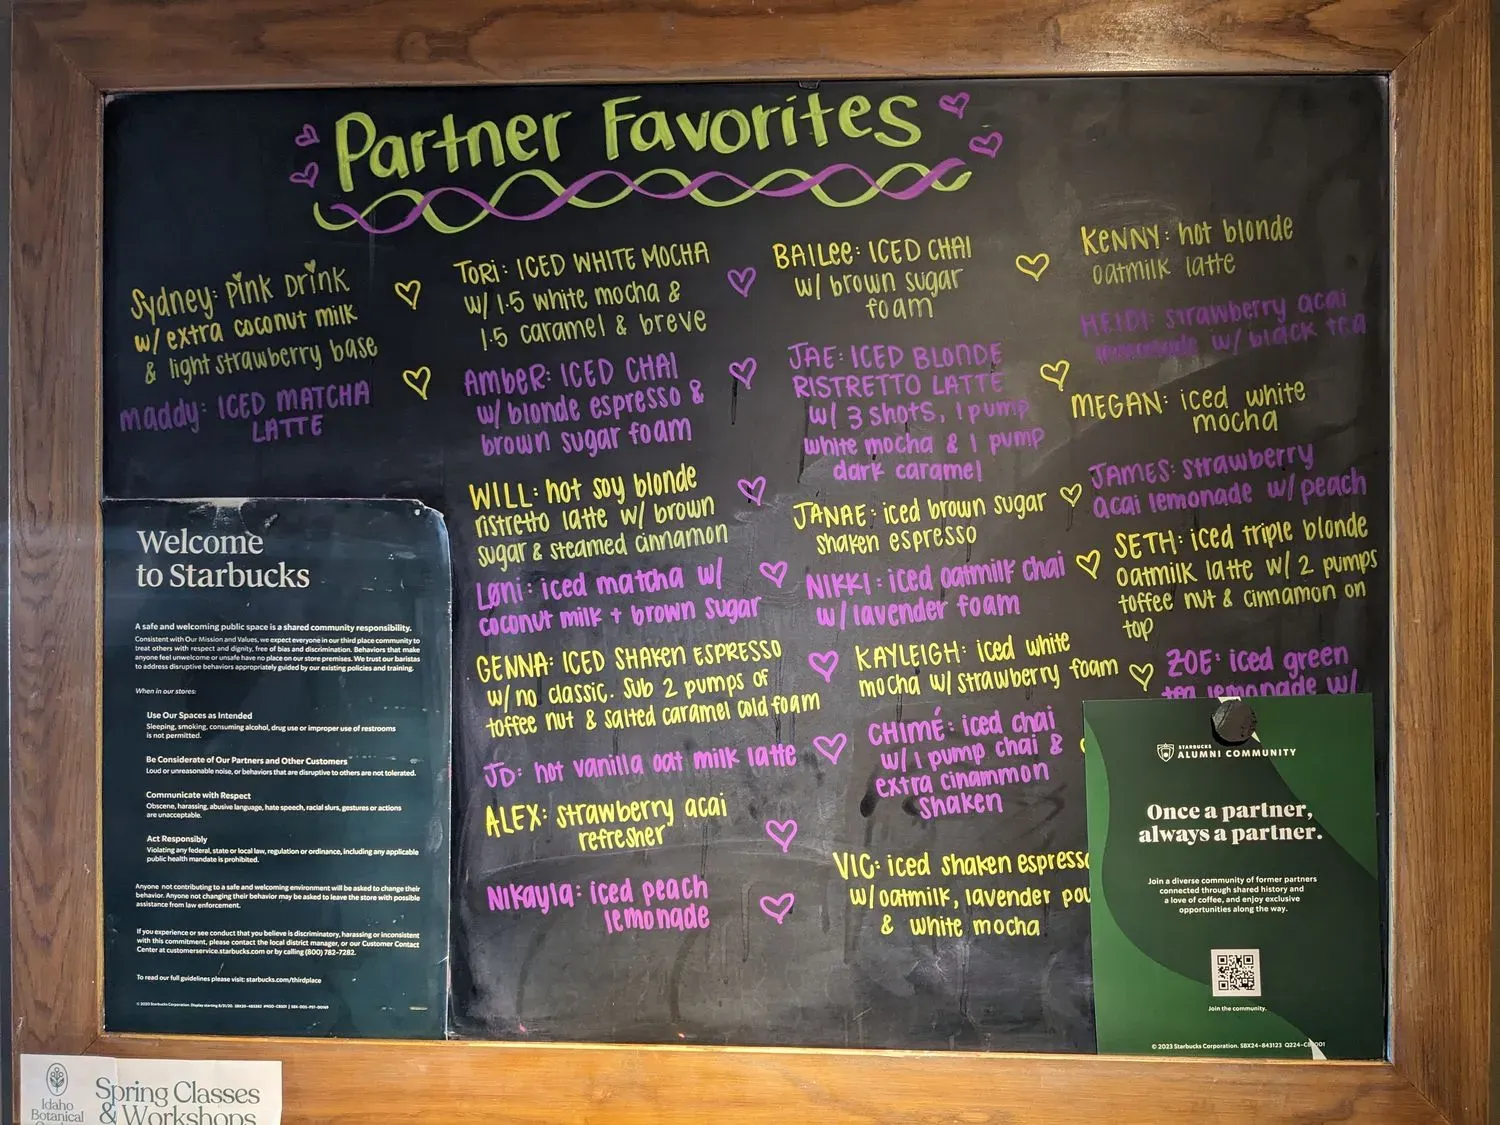 Partner Favorites
Sydney: Pink Drink
w/ extra coconut milk
& light strawberry base
maddy: ICED MATCHA
LATTE
TORI: ICED WHITE MOCHA
w/ 1.5 white mocha &
1.5 caramel & breve
AMBER: ICED CHAI
w/ blonde espresso &
brown sugar foam
WILL: hot soy blonde
ristretto latte w/ brown
sugar & steamed cinnamon
Loni: iced matcha w/
coconut milk + brown sugar
GENNA: ICED SHAKEN ESPRESSO
w/ no classic. Sub 2 pumps of
toffee nut & salted caramel cold foam
JD: hot vanilla oat milk latte
ALEX: strawberry acai
refresher
Nikayla: iced peach
lemonade
BAILee: ICED CHAI
w/ brown sugar
foam
JAE: ICED BLONDE
RISTRETTO LATTE
w/ 3 shots, 1 pump
white mocha & 1 pump
dark caramel
JANAE: iced brown sugar
shaken espresso
NIKKI: iced oatmilk chai
w/ lavender foam
KAYLEIGH: iced white
mocha w/ strawberry foam
CHIMÉ: iced chai
w/ 1 pump chai &
extra cinammon
shaken
VIC: iced shaken espresso
w/ oatmilk, lavender pow
& white mocha
KENNY: hot blonde
oatmilk latte
HEIDI: strawberry acai
w/ black tea
MEGAN: iced white
mocha
JAMES: strawberry
acai lemonade w/ peach
SETH: iced triple blonde
oatmilk latte w/ 2 pumps
toffee nut & cinnamon on
top
ZOE: iced green
tea lemonade w/
Welcome
to Starbucks
A safe and welcoming public space is a shared community responsibility.
Consistent with Our Mission and Values, we expect everyone in our third place community to
treat others with respect and dignity, free of bias and discrimination. Behaviors that make
anyone feel unwelcome or unsafe have no place on our store premises. We trust our baristas
to address disruptive behaviors appropriately guided by our existing policies and training.
When in our stores:
Use Our Spaces as Intended
Sleeping, smoking, consuming alcohol, drug use or improper use of restrooms
is not permitted.
Be Considerate of Our Partners and Other Customers
Loud or unreasonable noise, or behaviors that are disruptive to others are not tolerated.
Communicate with Respect
Obscene, harassing, abusive language, hate speech, racial slurs, gestures or actions
are unacceptable.
Act Responsibly
Violating any federal, state or local law, regulation or ordinance, including any applicable
public health mandate is prohibited.
Anyone not contributing to a safe and welcoming environment will be asked to change their
behavior. Anyone not changing their behavior may be asked to leave the store with possible
assistance from law enforcement.
If you experience or see conduct that you believe is discriminatory, harassing or inconsistent
with this commitment, please contact the local district manager, or our Customer Contact
Center at customerservice.starbucks.com or by calling (800) 782-7282.
To read our full guidelines please visit: starbucks.com/thirdplace
© 2020 Starbucks Corporation.
STARBUCKS
ALUMNI COMMUNITY
Once a partner,
always a partner.
Join a diverse community of former partners
connected through shared history and
a love of coffee, and enjoy exclusive
opportunities along the way.
Join the community.
© 2023 Starbucks Corporation. SBX24-843123
Idaho
Botanical
Spring Classes
& Workshops